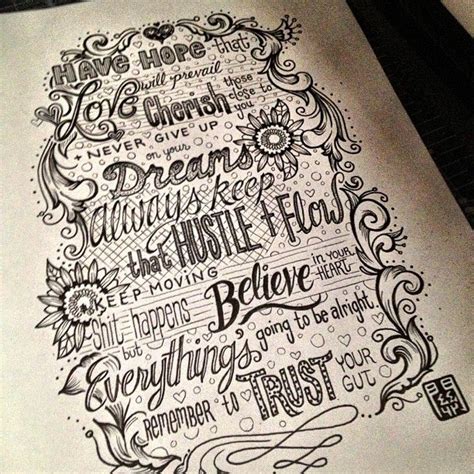 Have Hope that
will prevail
Love Cherish those close to you
+ NEVER GIVE UP
on your
Dreams
always keep
that HUSTLE + Flow
KEEP MOVING
shit happens Believe IN YOUR HEART
but
Everything's going to be alright.
remember to TRUST YOUR GUT